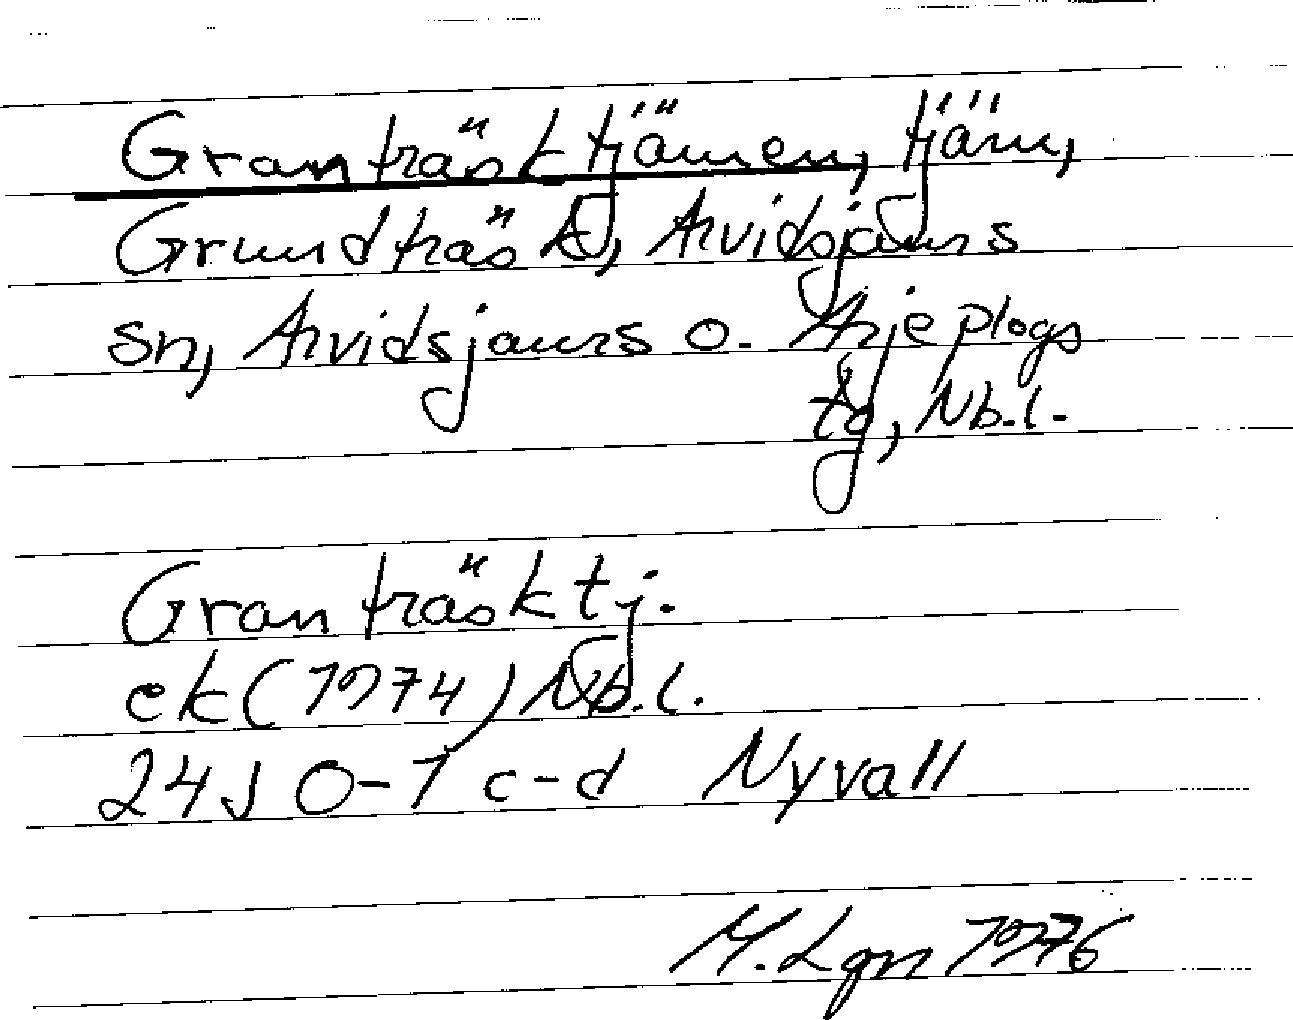 Granträsktjärnen, tjärn,
Grundträsk, Arvidsjaurs
sn, Arvidsjaurs o. Arjeplogs
tg, Nb.l.
Granträsktj.
ek (1974) Nb.l.
24J 0-1 c-d Nyvall
M. Lgn 1976